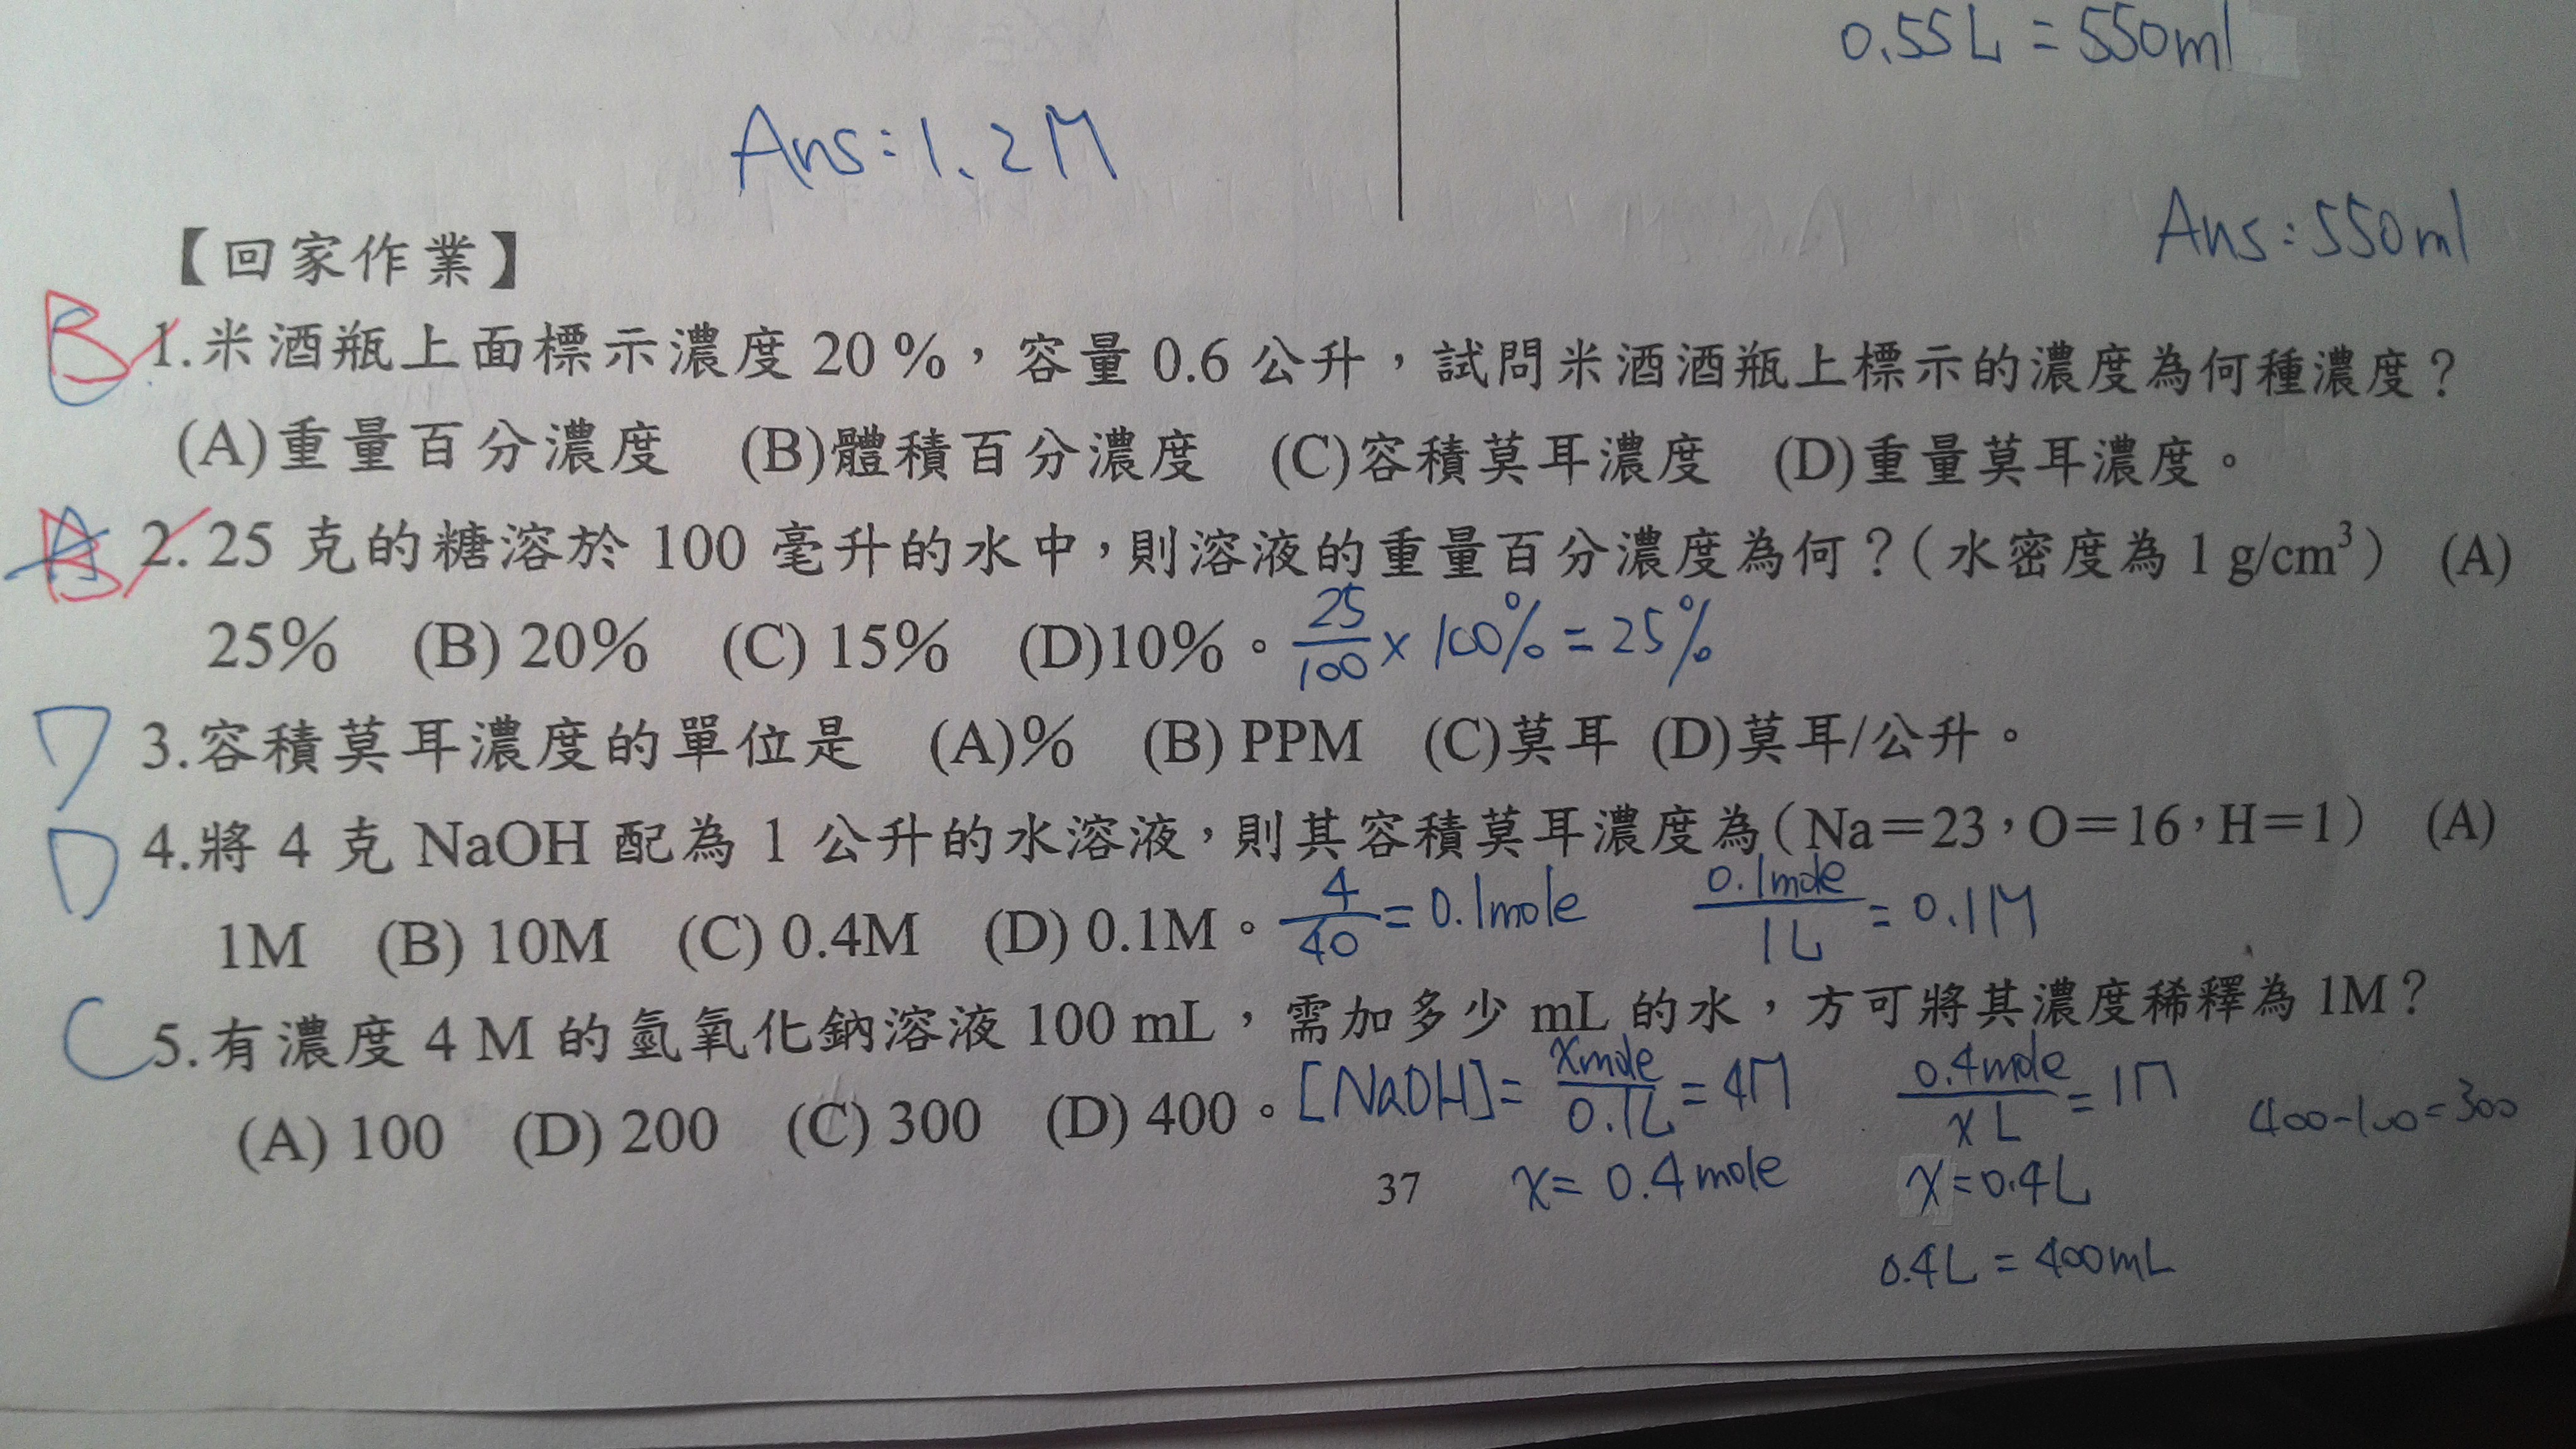 0.55L = 550ml
Ans:1.2M
Ans:550ml
【回家作業】
B 1.米酒瓶上面標示濃度 20 %，容量 0.6 公升，試問米酒酒瓶上標示的濃度為何種濃度？
(A)重量百分濃度 (B)體積百分濃度 (C)容積莫耳濃度 (D)重量莫耳濃度。
B 2. 25 克的糖溶於 100 毫升的水中，則溶液的重量百分濃度為何？（水密度為 1 g/cm³） (A)
25% (B) 20% (C) 15% (D)10%。 25/100 x 100% = 25%
D 3.容積莫耳濃度的單位是 (A)% (B) PPM (C)莫耳 (D)莫耳/公升。
D 4.將 4 克 NaOH 配為 1 公升的水溶液，則其容積莫耳濃度為（Na＝23，O＝16，H＝1） (A)
1M (B) 10M (C) 0.4M (D) 0.1M。 4/40 = 0.1mole 0.1mole/1L = 0.1M
C 5.有濃度 4 M 的氫氧化鈉溶液 100 mL，需加多少 mL 的水，方可將其濃度稀釋為 1M？
(A) 100 (D) 200 (C) 300 (D) 400。 [NaOH] = xmole/0.1L = 4M 0.4mole/xL = 1M 400-100=300
37 x = 0.4mole x=0.4L
0.4L = 400mL